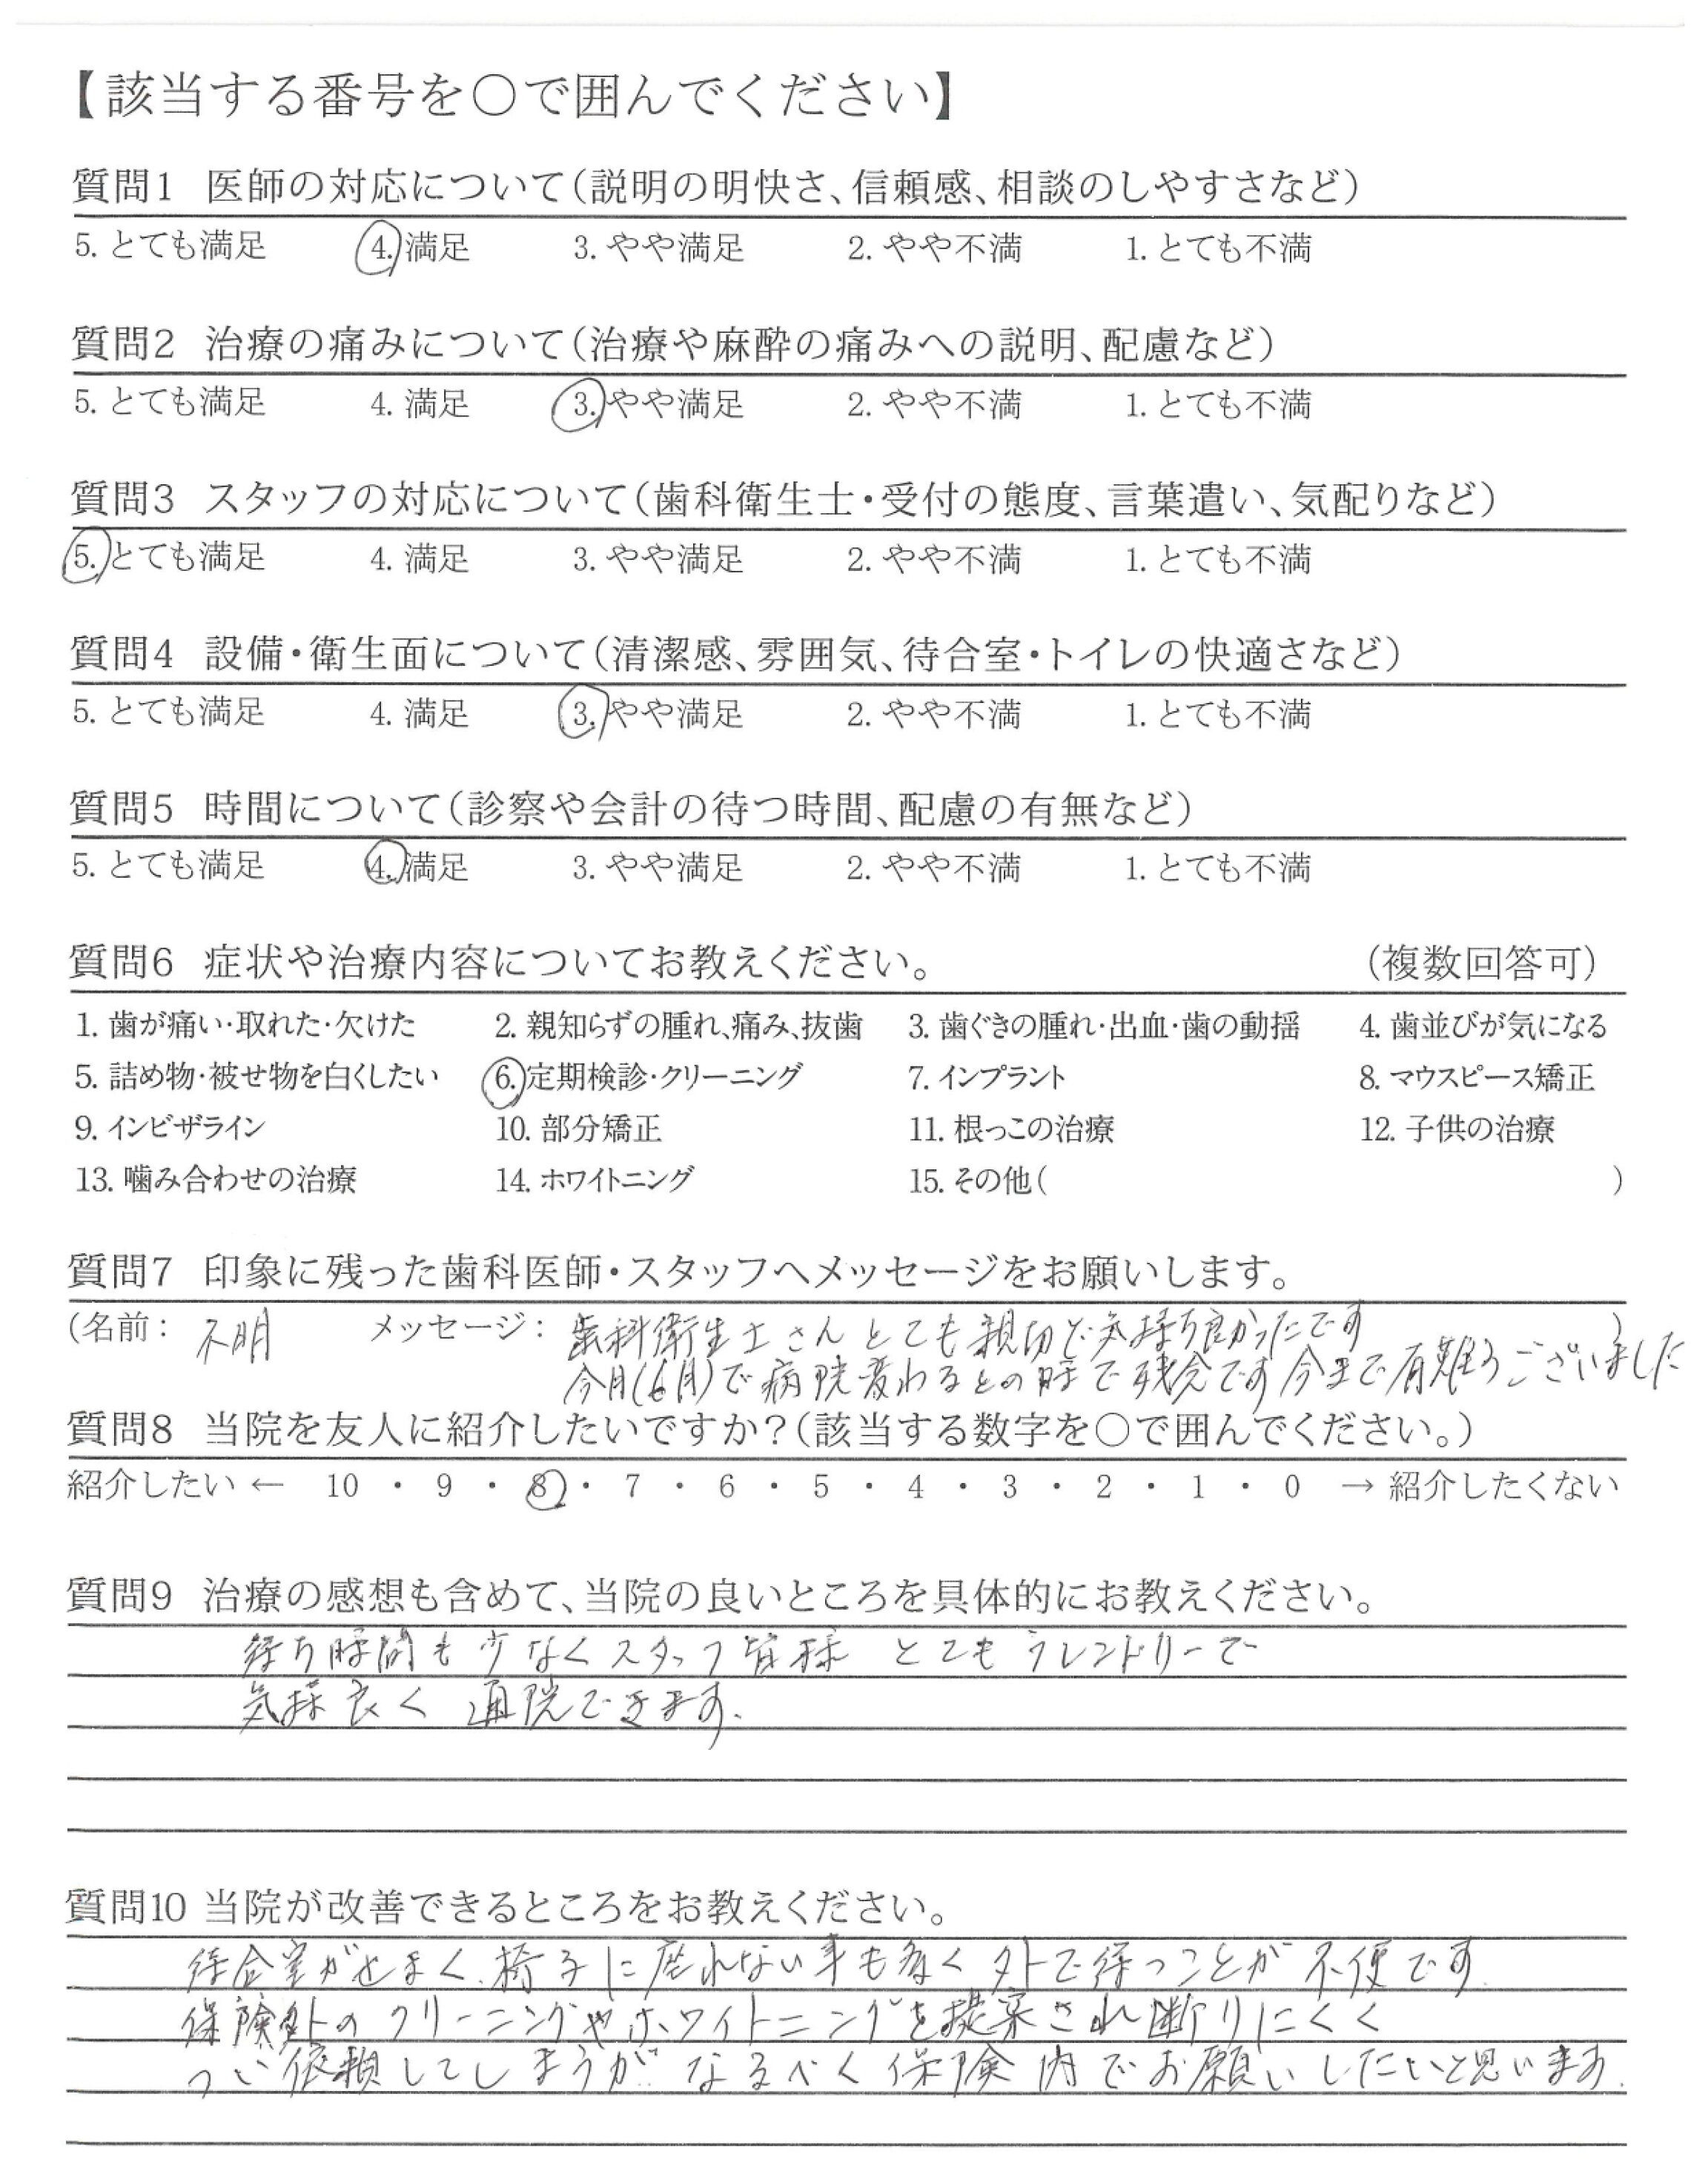 【該当する番号を○で囲んでください】
質問1 医師の対応について(説明の明快さ、信頼感、相談のしやすさなど)
5. とても満足 4. 満足 3. やや満足 2. やや不満 1. とても不満
質問2 治療の痛みについて(治療や麻酔の痛みへの説明、配慮など)
5. とても満足 4. 満足 3. やや満足 2. やや不満 1. とても不満
質問3 スタッフの対応について(歯科衛生士・受付の態度、言葉遣い、気配りなど)
5. とても満足 4. 満足 3. やや満足 2. やや不満 1. とても不満
質問4 設備・衛生面について(清潔感、雰囲気、待合室・トイレの快適さなど)
5. とても満足 4. 満足 3. やや満足 2. やや不満 1. とても不満
質問5 時間について(診察や会計の待つ時間、配慮の有無など)
5. とても満足 4. 満足 3. やや満足 2. やや不満 1. とても不満
質問6 症状や治療内容についてお教えください。 (複数回答可)
1. 歯が痛い・取れた・欠けた 2. 親知らずの腫れ、痛み、抜歯 3. 歯ぐきの腫れ・出血・歯の動揺 4. 歯並びが気になる
5. 詰め物・被せ物を白くしたい 6. 定期検診・クリーニング 7. インプラント 8. マウスピース矯正
9. インビザライン 10. 部分矯正 11. 根っこの治療 12. 子供の治療
13. 噛み合わせの治療 14. ホワイトニング 15. その他( )
質問7 印象に残った歯科医師・スタッフへメッセージをお願いします。
(名前: 不明 メッセージ: 歯科衛生士さんとても親切で気持ち良かったです )
今月(6月)で病院変わるとの事で残念です今まで有難うございました
質問8 当院を友人に紹介したいですか?(該当する数字を○で囲んでください。)
紹介したい ← 10 ・ 9 ・ 8 ・ 7 ・ 6 ・ 5 ・ 4 ・ 3 ・ 2 ・ 1 ・ 0 → 紹介したくない
質問9 治療の感想も含めて、当院の良いところを具体的にお教えください。
待ち時間も少なくスタッフ皆様 とてもフレンドリーで
気持良く 通院できます。
質問10 当院が改善できるところをお教えください。
待合室がせまく、椅子に座れない事も多く外で待つことが不便です.
保険外のクリーニングやホワイトニングを提案され断りにくく
つい依頼してしまうが なるべく保険内でお願いしたいと思います.